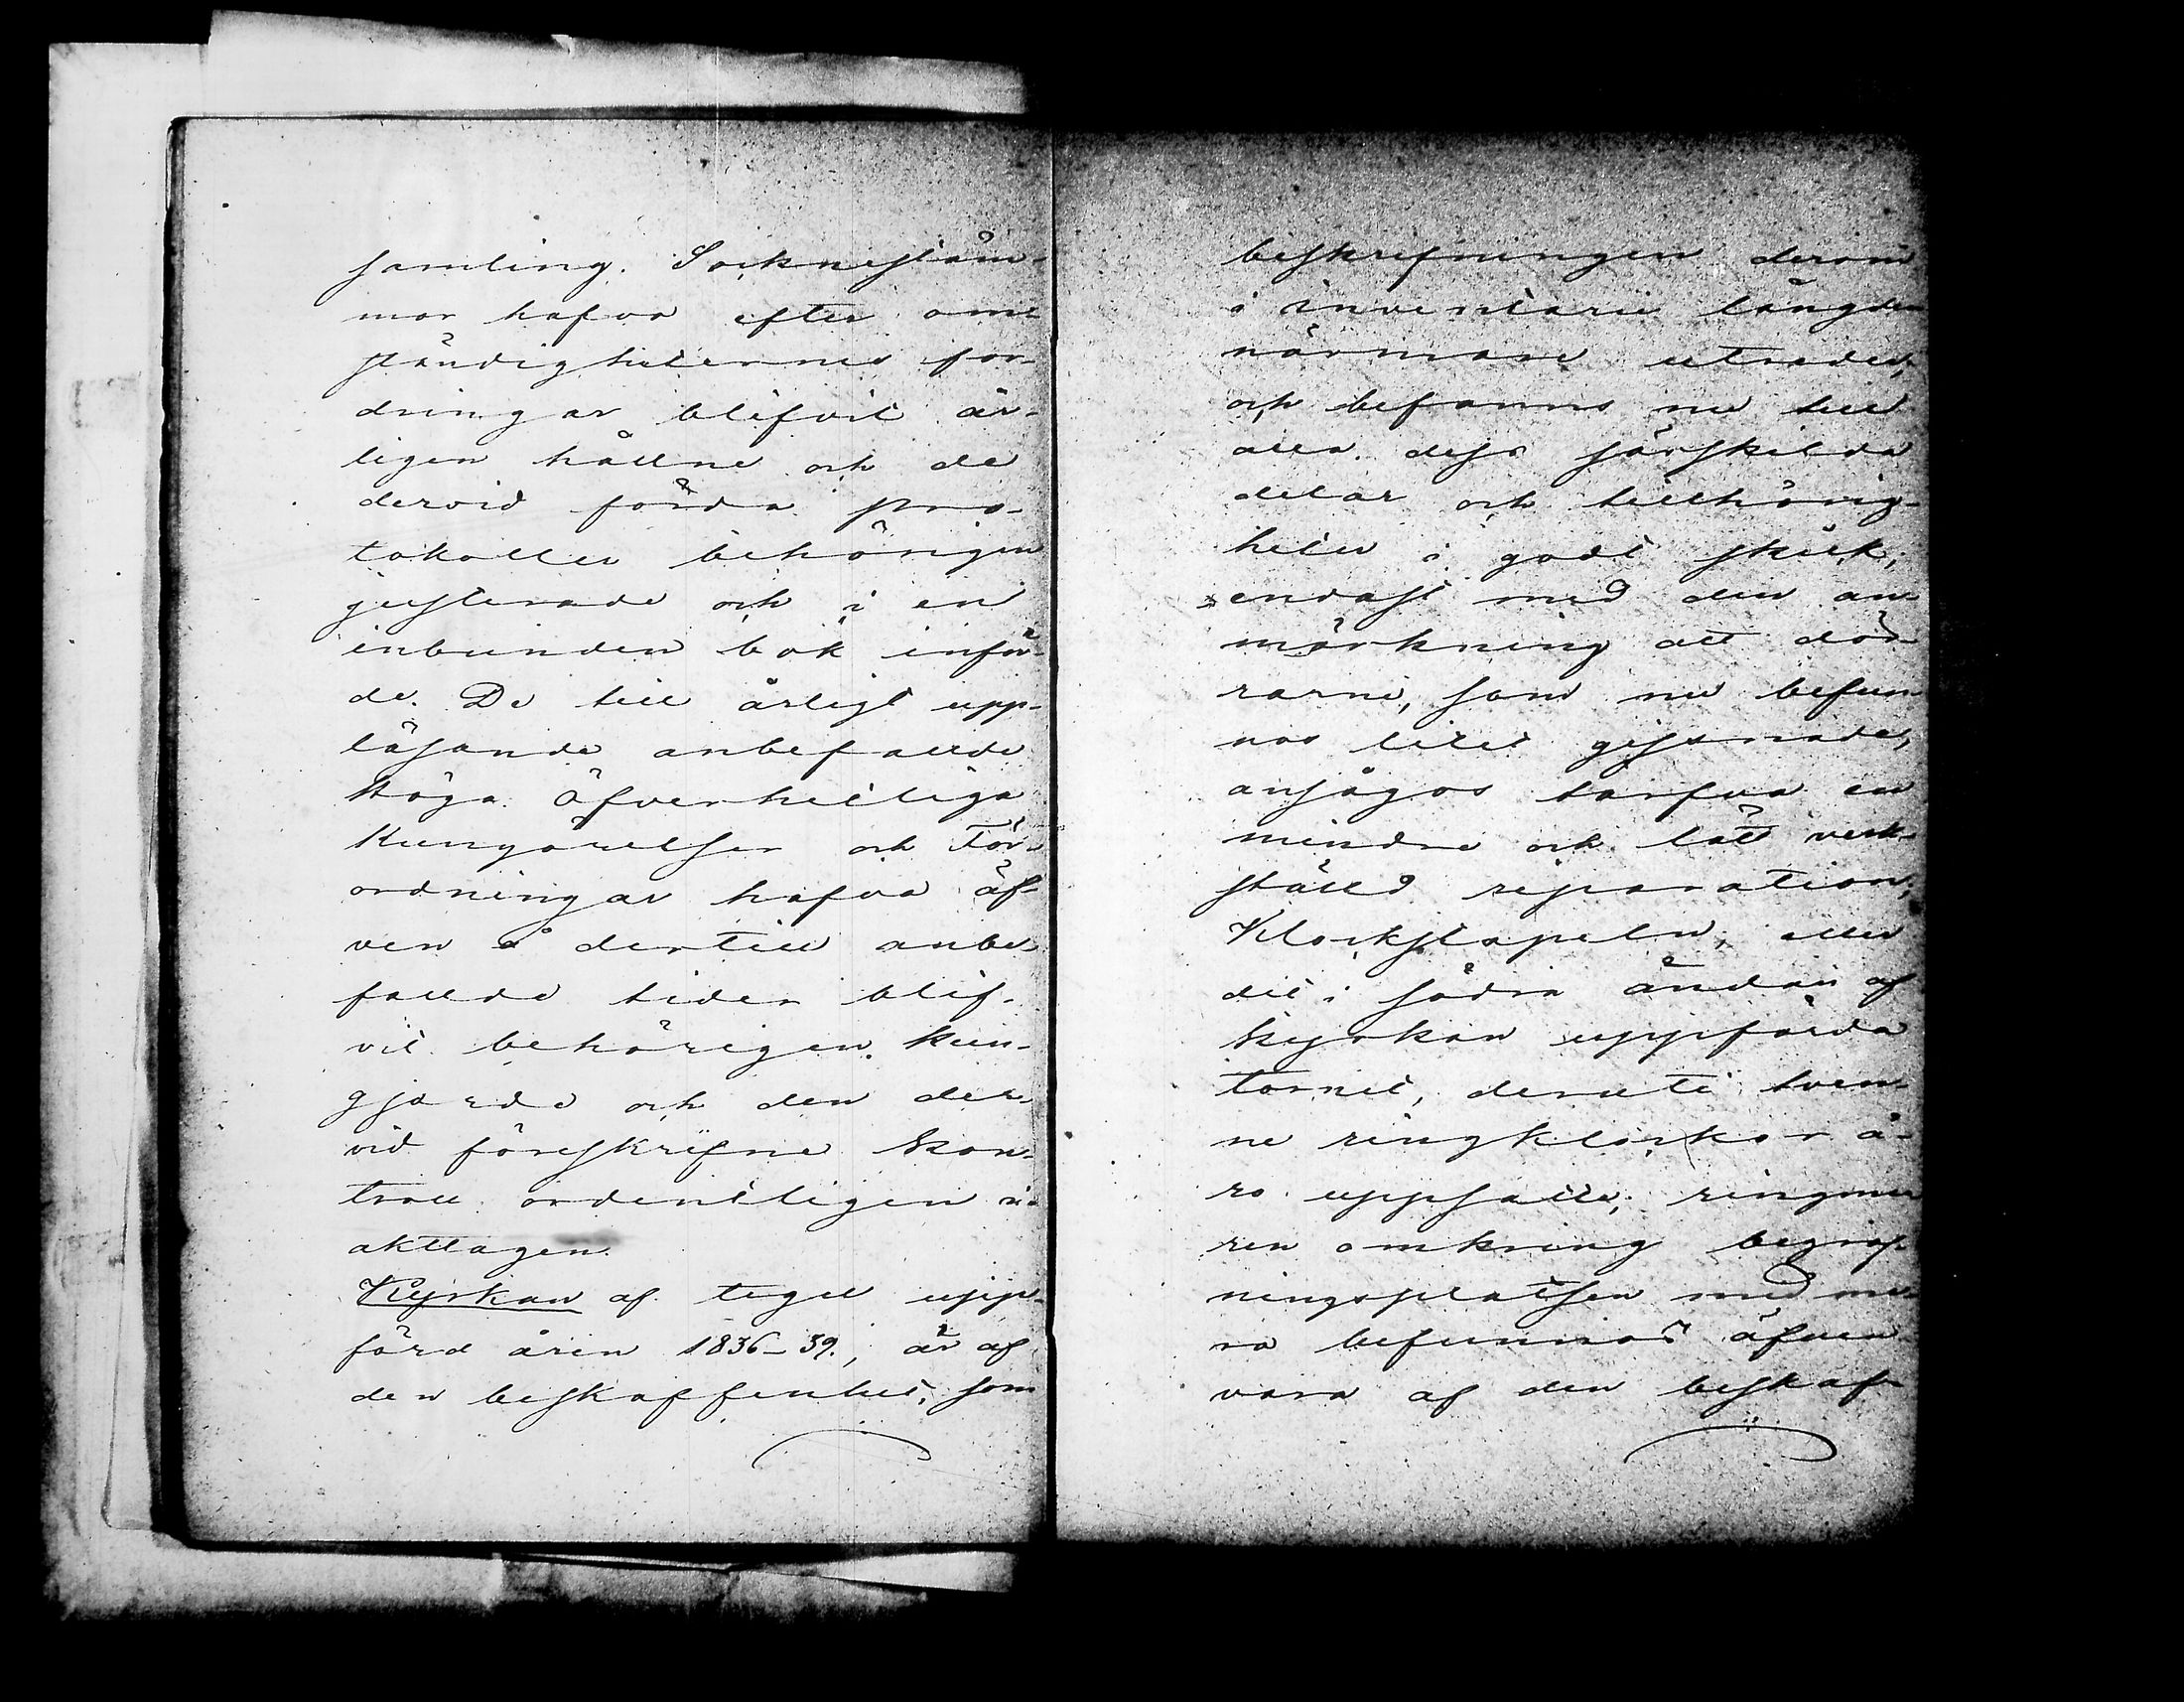 samling. Socknestäm-
mor hafva efter om-
ständigheternes for-
dringar blifvit år-
ligen hållne och de
dervid förda pro-
tokoller behörigen
justerade och i en
inbunden bok inför-
de. De till årligt upp-
läsande anbefallde
Höga Öfverhetliga
Kungörelser och För-
ordningar hafva äf-
ven å dertill anbe-
fallde tider blif-
vit behörigen kun-
gjorde och den der-
vid föreskrifne Kon-
troll ordentligen i-
akttagen.
Kyrkan af tegel upp-
förd åren 1836-39., är af
den beskaffenhet, som
beskrifningen derom
i inventarie längden
närmare utreder,
och befanns nu till
alla dess särskilda
delar och tillhörig-
heter i godt skick,
endast med den an-
märkning att dör-
rarne, som nu befun-
nos litet gistnade,
ansågos tarfva en
mindre och lätt verk-
ställd reparation;
Klockstapeln, eller
det i södra ändan af
kyrkan uppförda
tornet, deruti tven-
ne ringklockor ä-
ro uppsatte; ringmu
ren omkring begraf-
ningsplatsen med me-
ra befunnos äfven
vara af den beskaf-